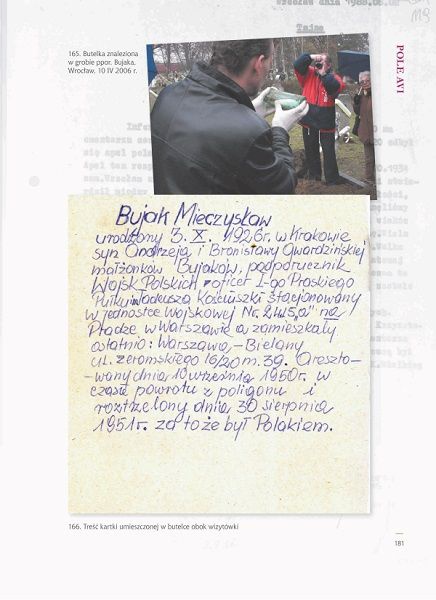 Tajne
165. Butelka znaleziona
w grobie ppor. Bujaka,
Wrocław, 10 IV 2006 r.
POLE AVI
Bujak Mieczysław
urodzony 3. X. 1926r. w Krakowie
syn Andrzeja i Bronisławy Gwardzińskiej
małżonków Bujaków, podporucznik
Wojsk Polskich oficer I-go Praskiego
Pułku Tadeusza Kościuszki stacjonowany
w jednostce Wojskowej Nr. 2445„a" na
Pradze w Warszawie a zamieszkały
ostatnio: Warszawa, - Bielany
ul. Żeromskiego 16/20 m. 39. Areszto-
-wany dnia 10 września 1950r. w
czasie powrotu z poligonu i
rozstrzelony dnia 30 sierpnia
1951r. za to że był Polakiem.
166. Treść kartki umieszczonej w butelce obok wizytówki
181